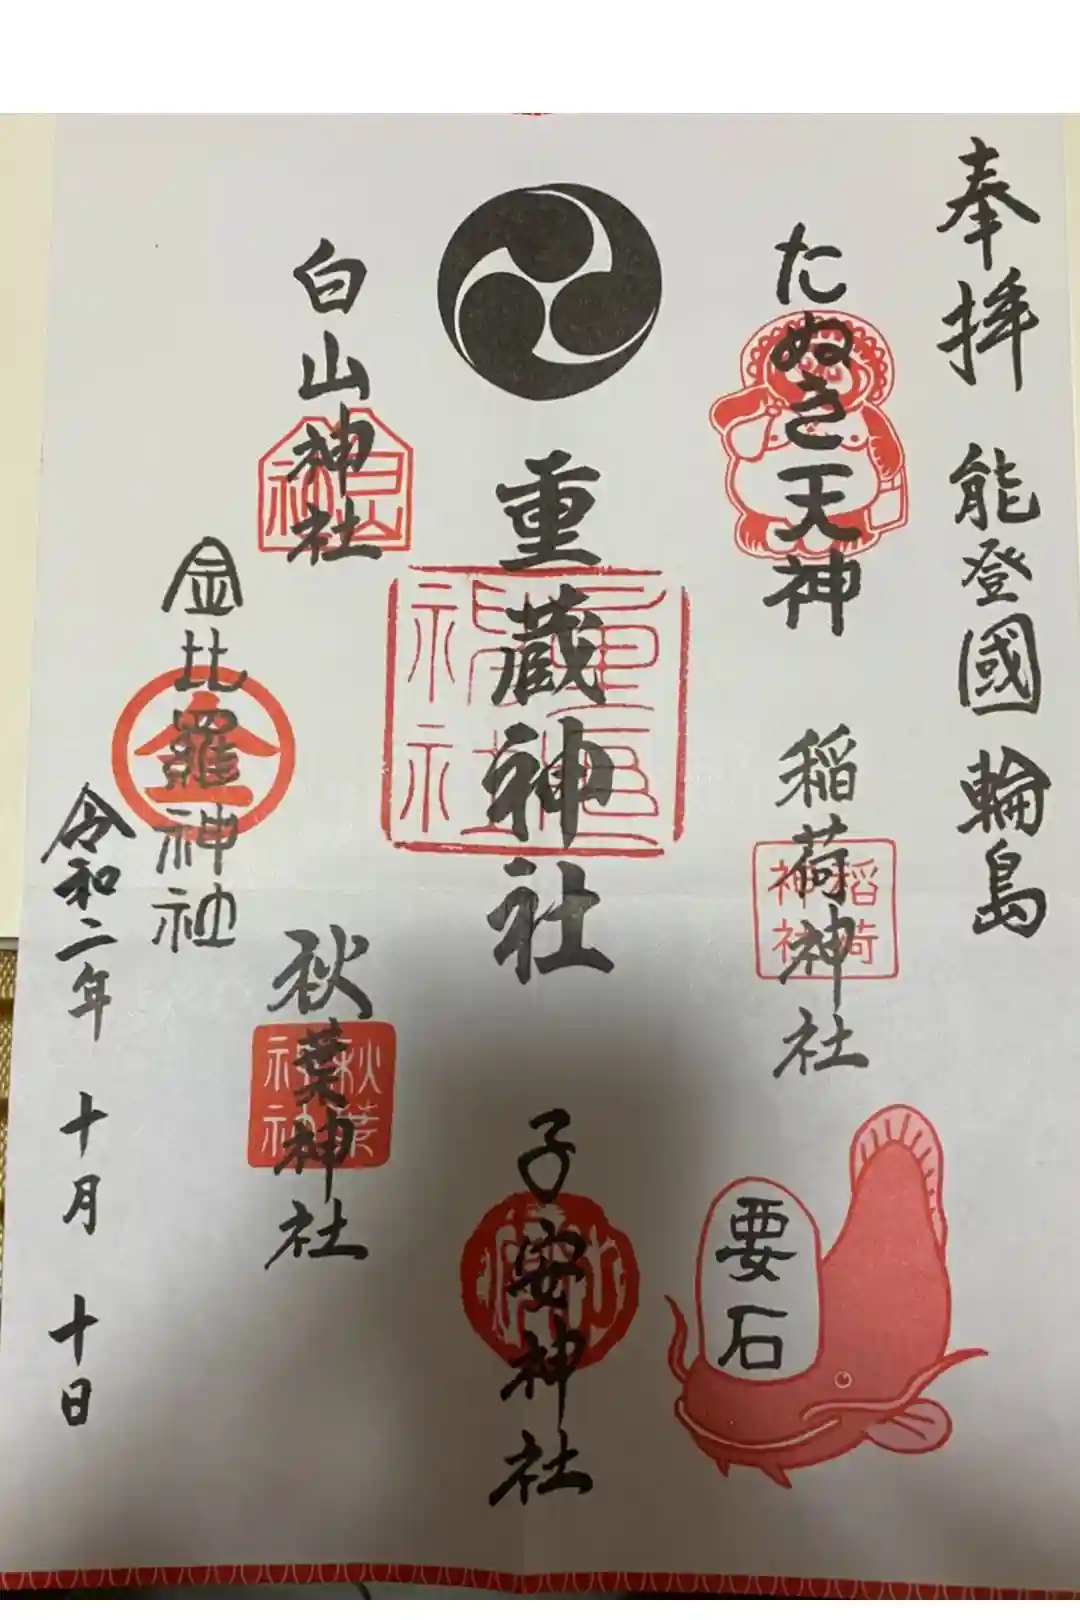 奉拝 能登國 輪島
たぬき天神
稲荷神社
稲荷
神社
要石
重蔵神社
子安神社
白山神社
白山
神社
秋葉神社
秋葉
神社
金比羅神社
金
令和二年 十月 十日